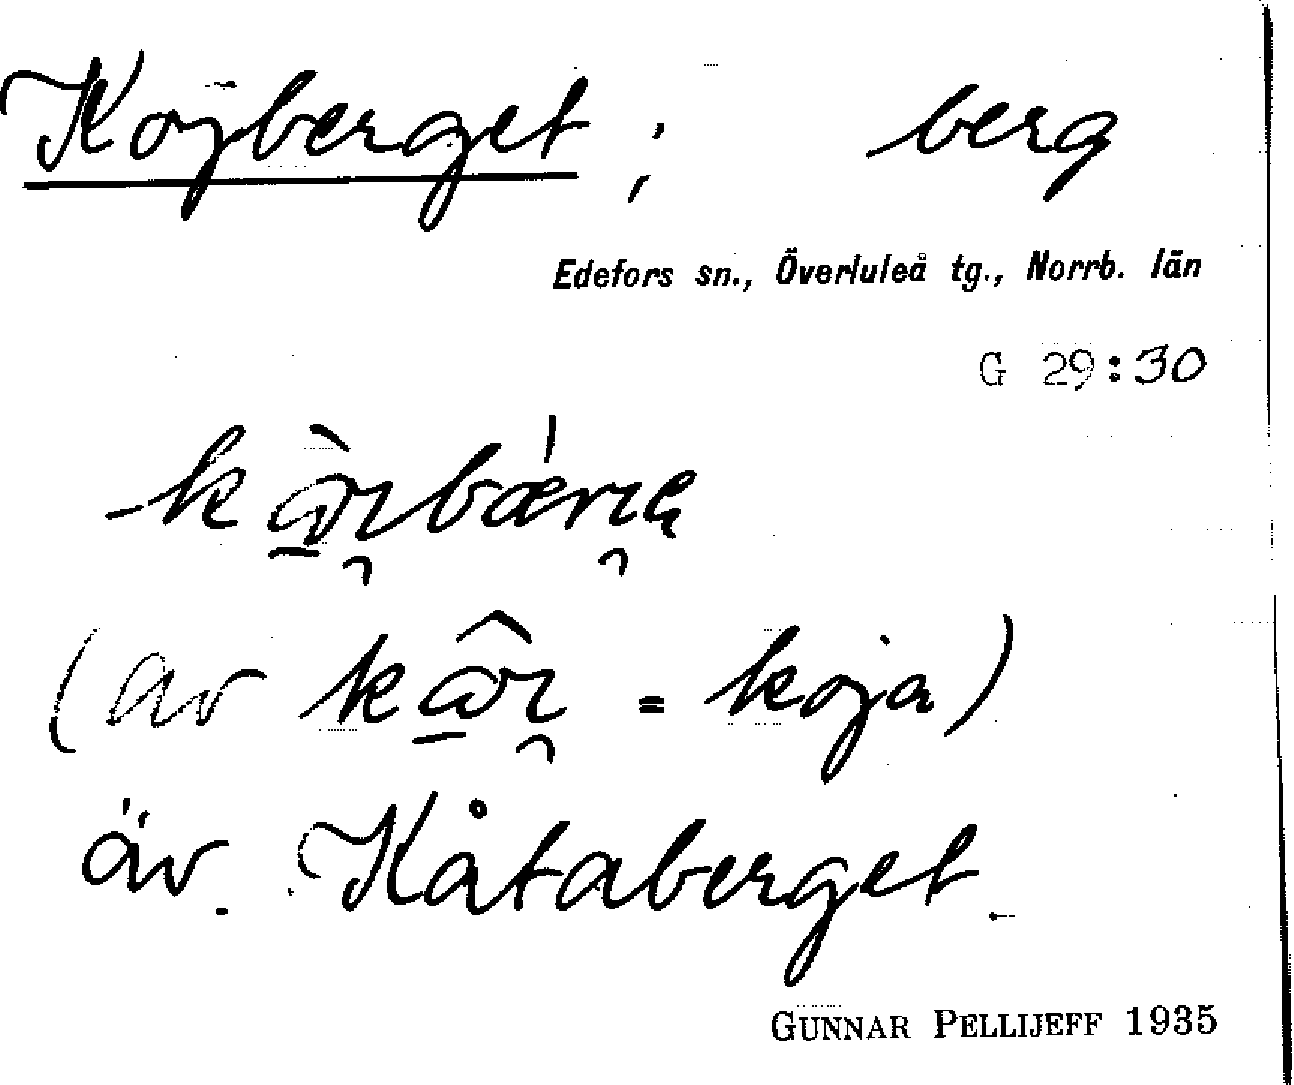 Kojberget; berg
Edefors sn., Överluleå tg., Norrb. län
G 29:30
(av = koja)
äv. Kåtaberget
GUNNAR PELLIJEFF 1935